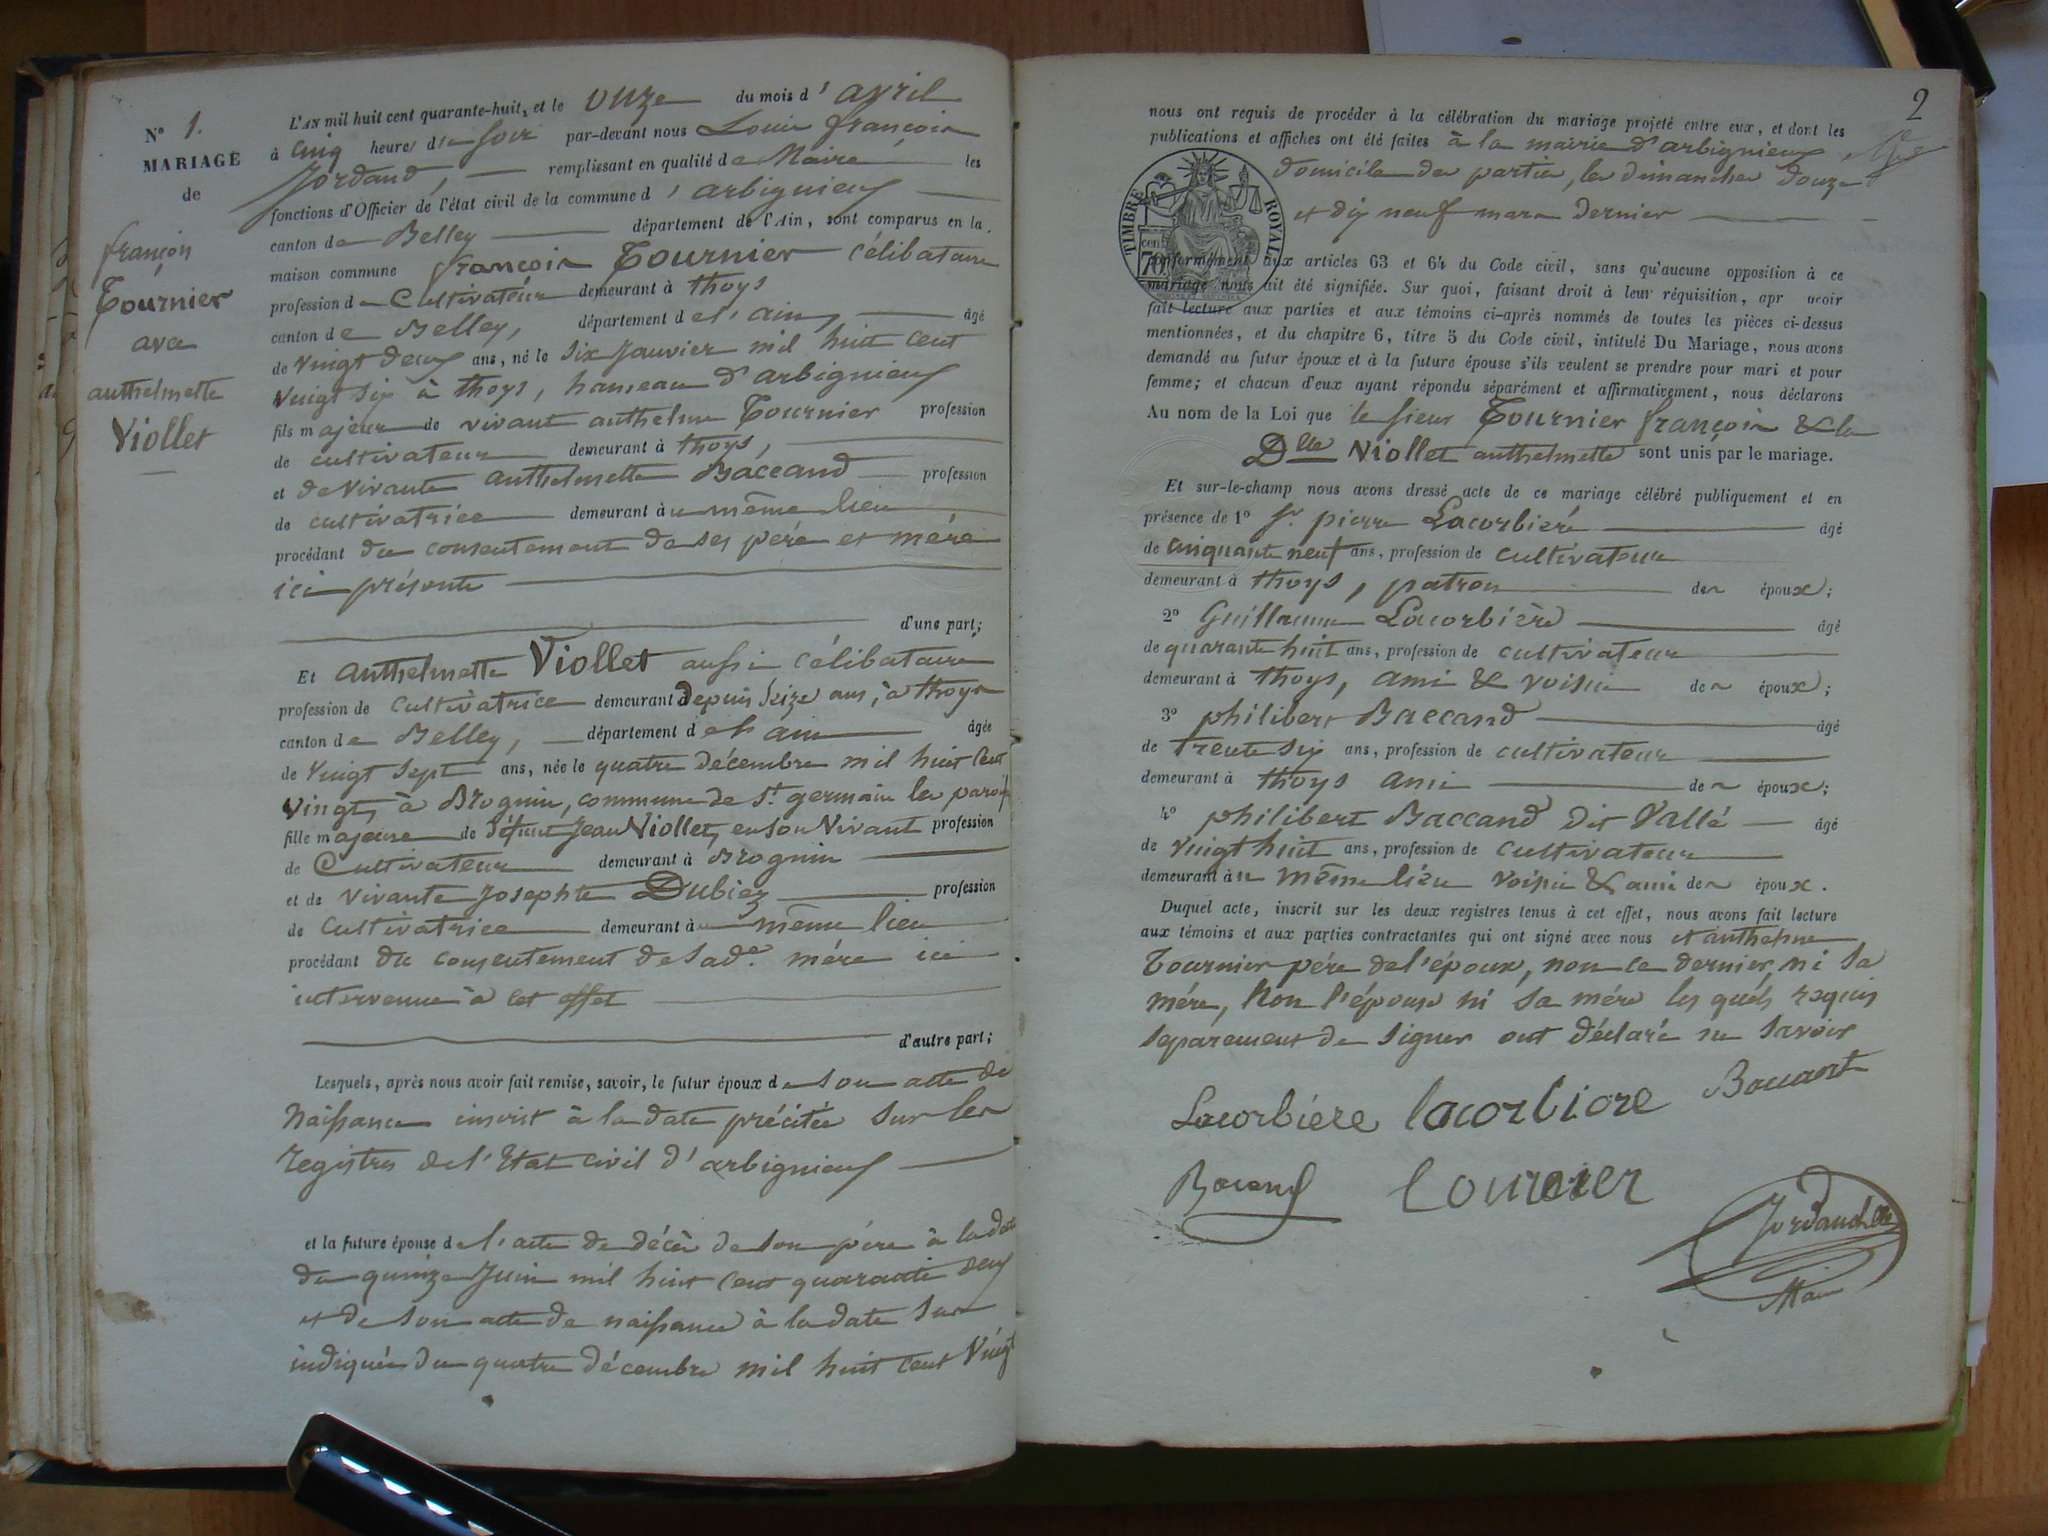 N° 1.
MARIAGE
de
françois
Tournier
avec
anthelmette
Viollet
L'AN mil huit cent quarante-huit, et le onze du mois d'avril
à cinq heures du soir par-devant nous Louis françois
Jordand, remplissant en qualité de Maire les
fonctions d'Officier de l'état civil de la commune d'arbignieux
canton de Belley département de l'Ain, sont comparus en la
maison commune françois Tournier célibataire
profession de Cultivateur demeurant à thoys
canton de Belley, département de l'ain, âgé
de vingt deux ans, né le six janvier mil huit cent
vingt six à thoys, hameau d'arbignieux
fils majeur de vivant anthelme Tournier profession
de cultivateur demeurant à thoys,
et de vivante anthelmette Baccand profession
de cultivatrice demeurant au même lieu
procédant du consentement de ses père et mère
ici présents
d'une part;
Et anthelmette Viollet aussi célibataire
profession de cultivatrice demeurant depuis seize ans, à thoys
canton de Belley, département de l'ain âgée
de vingt sept ans, née le quatre décembre mil huit cent
vingt, à Brognin, commune de St. germain les parois
fille majeure de défunt jean Viollet, en son vivant profession
de Cultivateur demeurant à Brognin
et de vivante josephte Dubiez profession
de Cultivatrice demeurant au même lieu
procédant du consentement de sade. mère ici
intervenue à cet effet
d'autre part;
Lesquels, après nous avoir fait remise, savoir, le futur époux de son acte de
Naissance inscrit à la date précitée sur les
registres de l'Etat civil d'arbignieux
et la future épouse de l'acte de décès de son père à la date
du quinze juin mil huit cent quarante deux
et de son acte de naissance à la date sus
indiquée du quatre décembre mil huit cent vingt
2
nous ont requis de procéder à la célébration du mariage projeté entre eux, et dont les
publications et affiches ont été faites à la mairie d'arbignieux,
domicile des parties, les dimanches douze
et dix neuf mars dernier
TIMBRE ROYAL
70 cent
conformément aux articles 63 et 64 du Code civil, sans qu'aucune opposition à ce
mariage nous ait été signifiée. Sur quoi, faisant droit à leur réquisition, apr avoir
fait lecture aux parties et aux témoins ci-après nommés de toutes les pièces ci-dessus
mentionnées, et du chapitre 6, titre 5 du Code civil, intitulé Du Mariage, nous avons
demandé au futur époux et à la future épouse s'ils veulent se prendre pour mari et pour
femme; et chacun d'eux ayant répondu séparément et affirmativement, nous déclarons
Au nom de la Loi que le sieur Tournier françois & la
Dlle Viollet anthelmette sont unis par le mariage.
Et sur-le-champ nous avons dressé acte de ce mariage célébré publiquement et en
présence de 1° Sr. pierre Lacorbière âgé
de cinquante neuf ans, profession de cultivateur
demeurant à thoys, patron des époux;
2° Guillaume Lacorbière âgé
de quarante huit ans, profession de cultivateur
demeurant à thoys, ami & voisin des époux;
3° philibert Baccand âgé
de trente six ans, profession de cultivateur
demeurant à thoys ami des époux;
4° philibert Baccand dit Vallé âgé
de vingt huit ans, profession de cultivateur
demeurant au même lieu voisin & ami des époux.
Duquel acte, inscrit sur les deux registres tenus à cet effet, nous avons fait lecture
aux témoins et aux parties contractantes qui ont signé avec nous et anthelme
Tournier père de l'époux, non ce dernier, ni sa
mère, Non l'épouse ni sa mère les quels requis
séparement de signer ont déclaré ne savoir
Lacorbiere lacorbiere Baccand
Tournier
Jordand
Maire